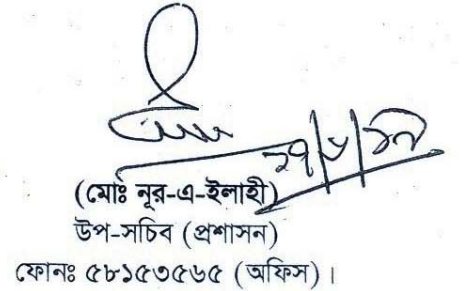 (মোঃ নূর-এ-ইলাহী)
উপ-সচিব (প্রশাসন)
ফোনঃ ৫৮১৫৩৫৬৫ (অফিস)।